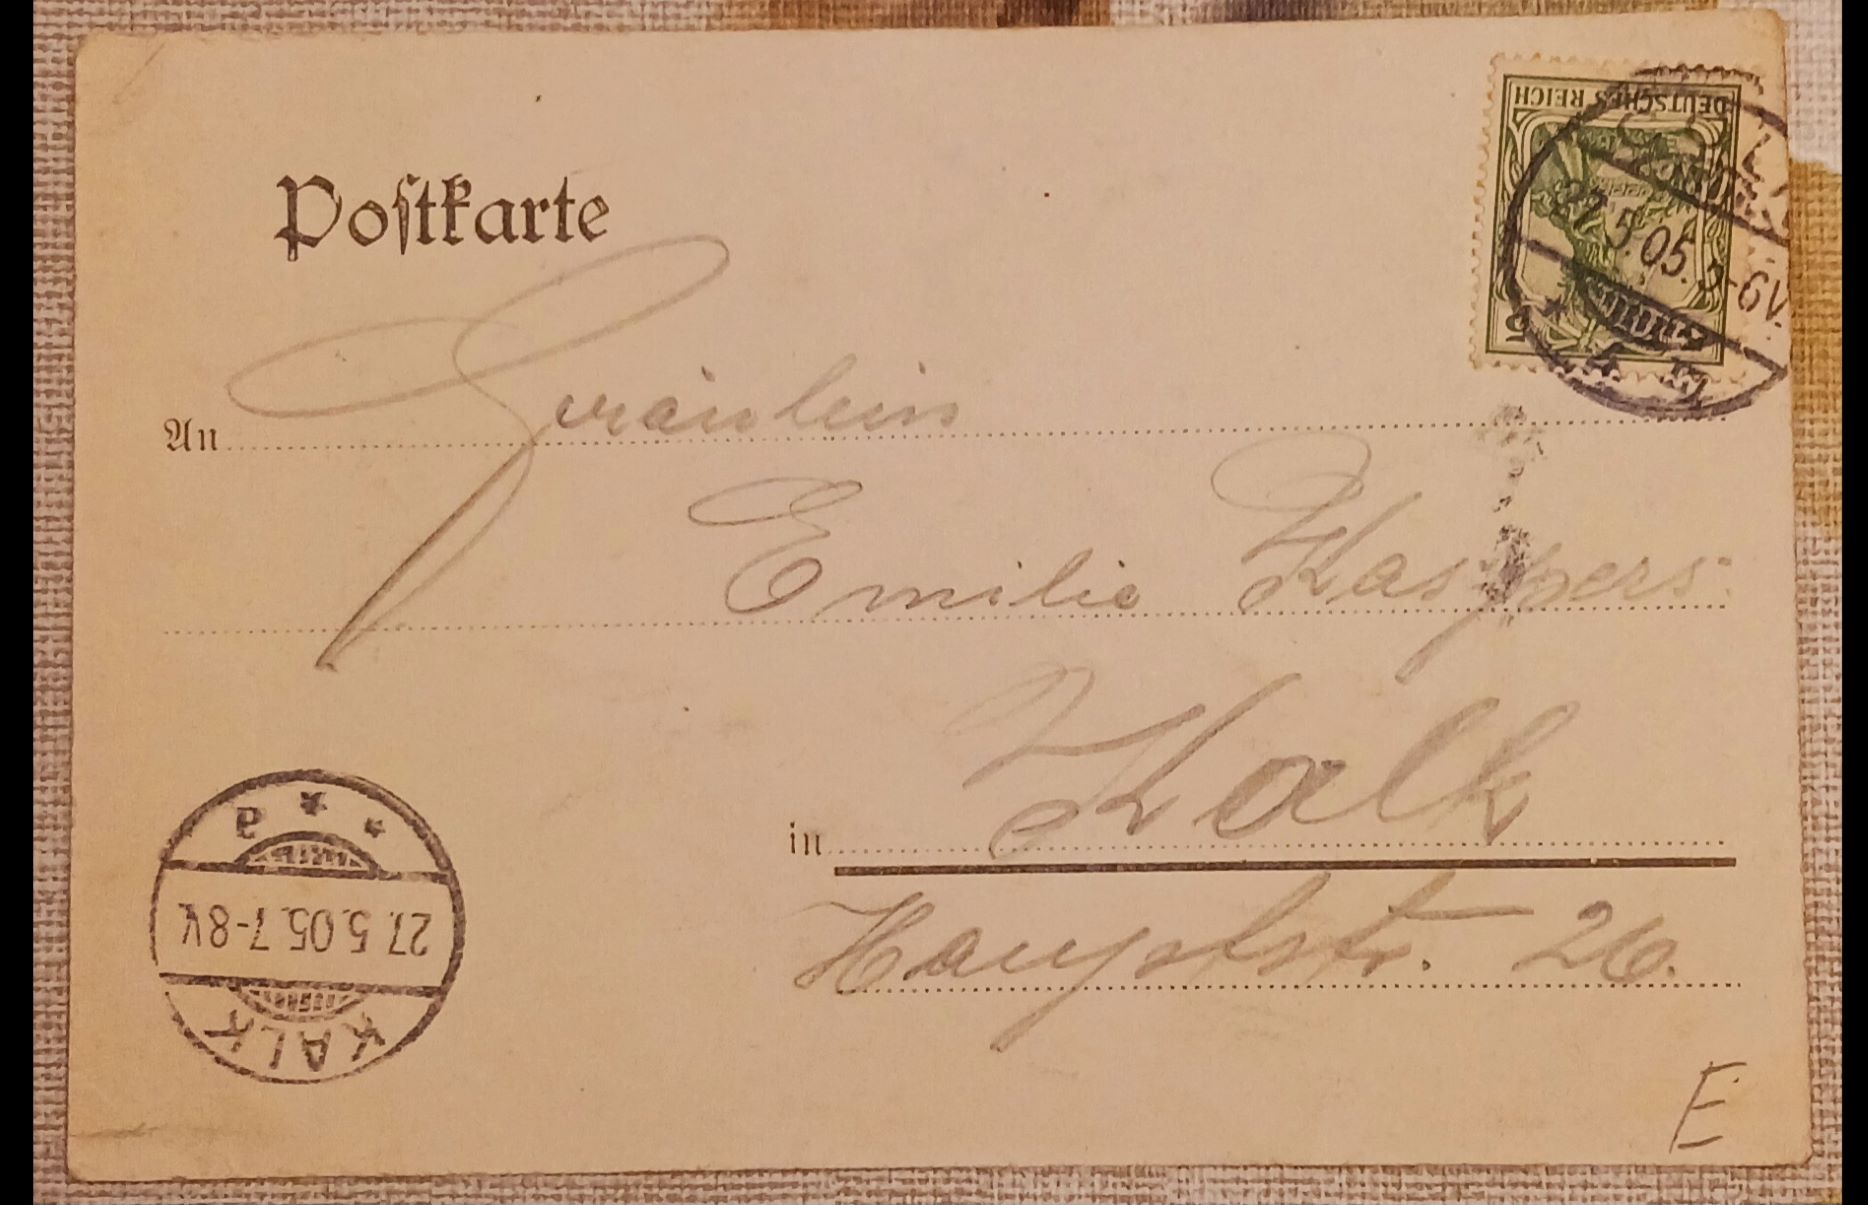 Postkarte
DEUTSCHES REICH
5
27.5.05. 5-6V.
An Fräulein
Emilie Kaspers
in Kalk
Hauptstr. 26.
* * e
27.5.05.7-8V.
KALK
E